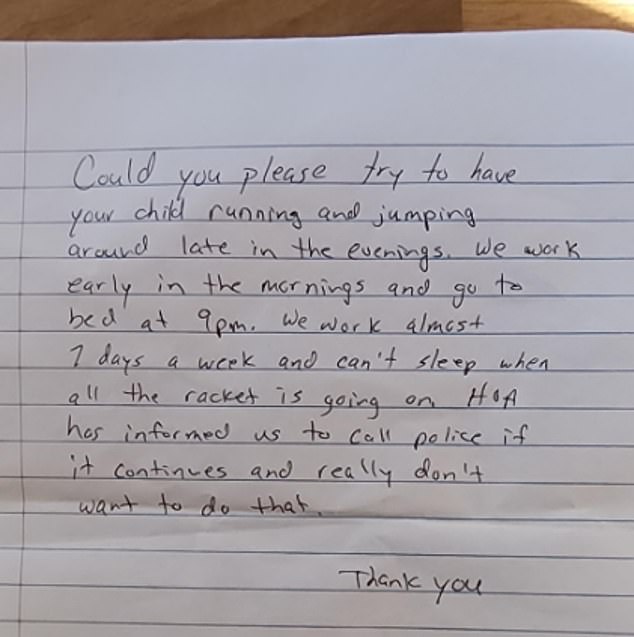 Could you please try to have
your child running and jumping
around late in the evenings. We work
early in the mornings and go to
bed at 9pm. We work almost
7 days a week and can't sleep when
all the racket is going on. HOA
has informed us to call police if
it continues and really don't
want to do that.
Thank you